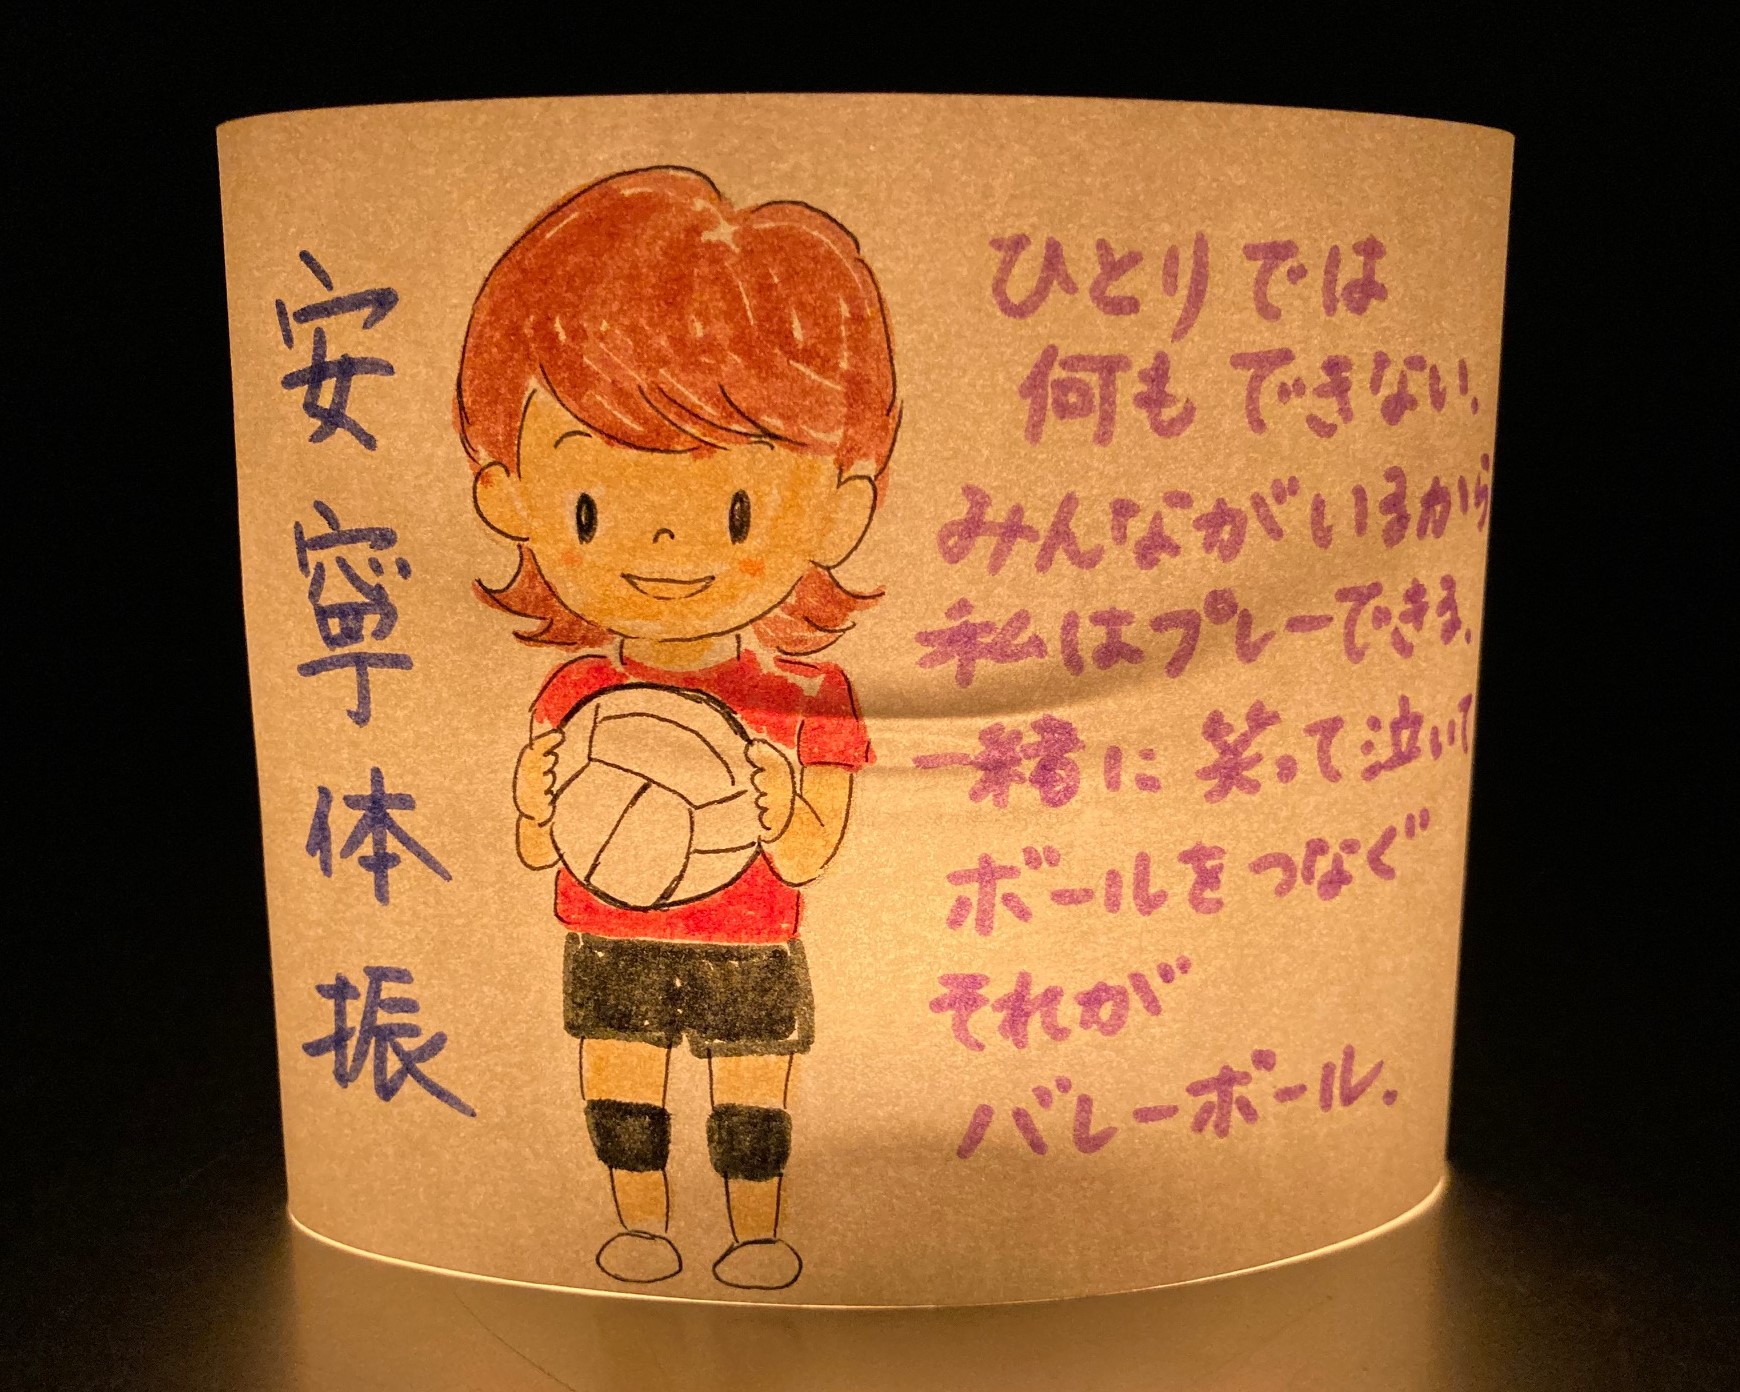 安寧体振
ひとりでは
何もできない、
みんながいるから
私はプレーできる、
一緒に笑って泣いて
ボールをつなぐ
それが
バレーボール。